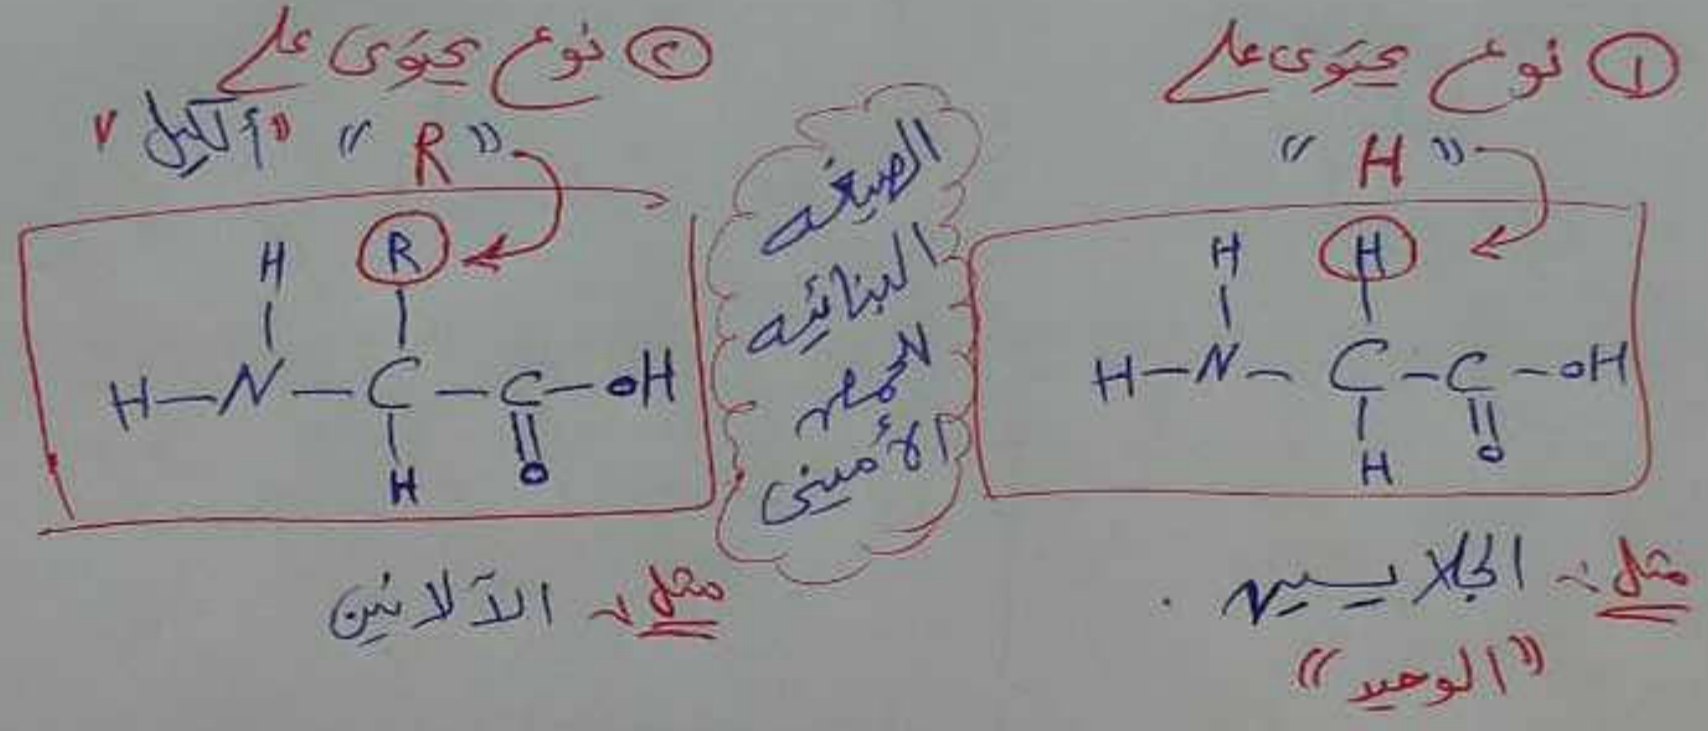 ① نوع يحتوى على
"H"
H H
H-N-C-C-OH
H O
مثل :- الجلايسين .
"الوحيد"
الصيغه
البنائيه
للحمض
الأمينى
② نوع يحتوى على
"R" "ألكيل"
H R
H-N-C-C-OH
H O
مثل :- الآلانين